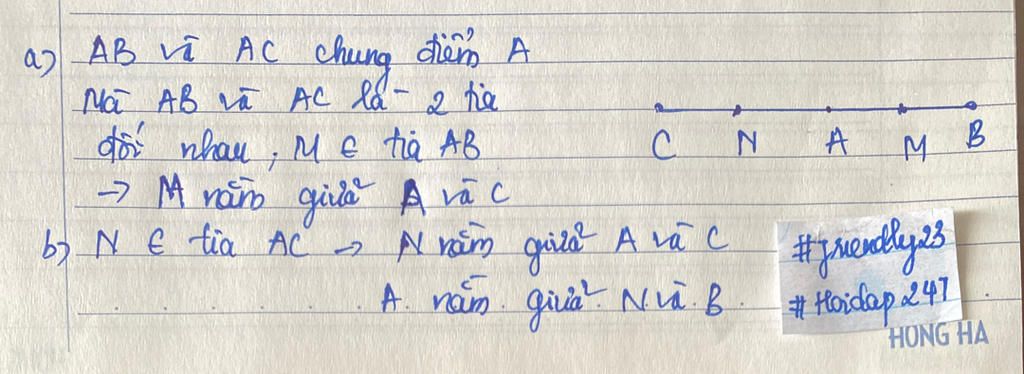 a) AB và AC chung điểm A
Mà AB và AC là 2 tia
đối nhau, M ∈ tia AB
→ M nằm giữa A và C
b) N ∈ tia AC → N nằm giữa A và C
A nằm giữa N và B
C N A M B
#friendly23
#Hoidap247
HONG HA